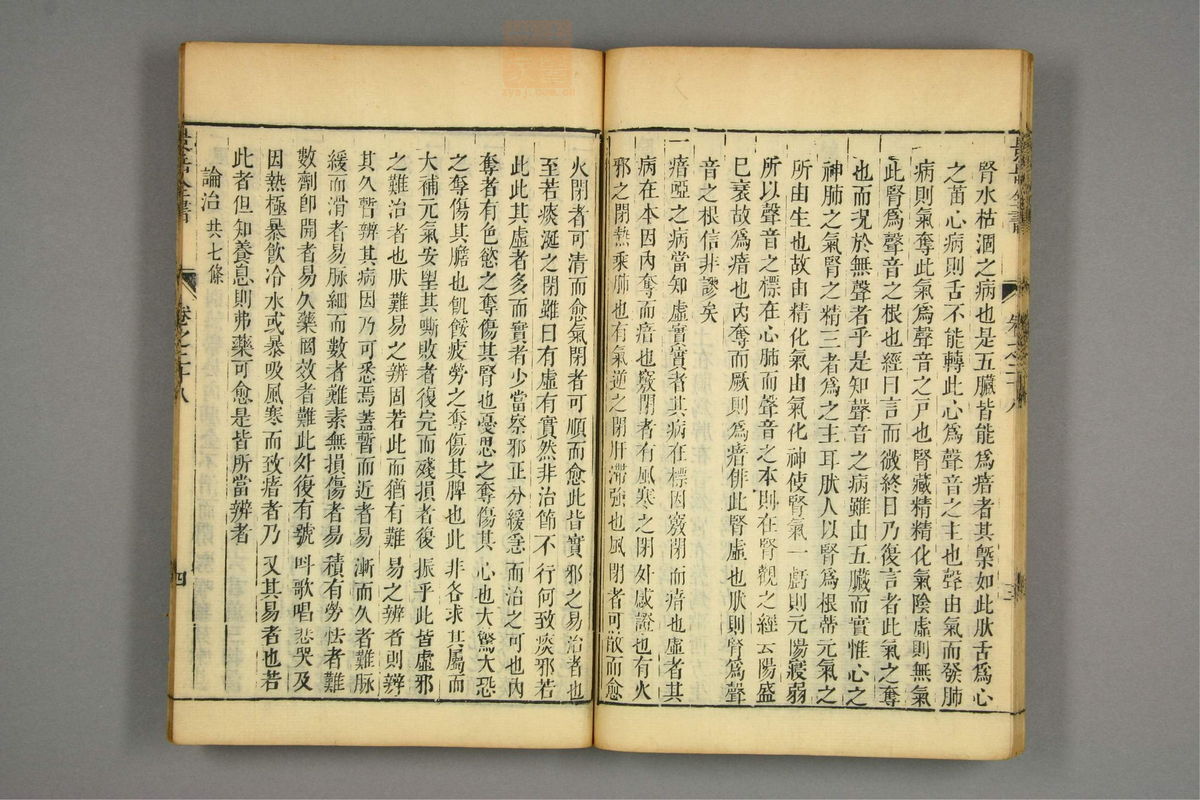 腎水枯涸之病也是五臟皆能爲瘖者其槩如此肰舌爲心
之苗心病則舌不能轉此心爲聲音之主也聲由氣而發肺
病則氣奪此氣爲聲音之戶也腎藏精精化氣陰虛則無氣
此腎爲聲音之根也經曰言而微終日乃復言者此氣之奪
也而況於無聲者乎是知聲音之病雖由五臟而實惟心之
神肺之氣腎之精三者爲之主耳肰人以腎爲根蒂元氣之
所由生也故由精化氣由氣化神使腎氣一虧則元陽寖弱
所以聲音之標在心肺而聲音之本則在腎觀之經云陽盛
已衰故爲瘖也內奪而厥則爲瘖俳此腎虛也肰則腎爲聲
音之根信非謬矣
一瘖啞之病當知虛實實者其病在標因竅閉而瘖也虛者其
病在本因內奪而瘖也竅閉者有風寒之閉外感證也有火
邪之閉熱乘肺也有氣逆之閉肝滯強也風閉者可散而愈
火閉者可清而愈氣閉者可順而愈此皆實邪之易治者也
至若痰涎之閉雖曰有虛有實然非治節不行何致痰邪若
此此其虛者多而實者少當察邪正分緩急而治之可也內
奪者有色慾之奪傷其腎也憂思之奪傷其心也大驚大恐
之奪傷其膽也飢餒疲勞之奪傷其脾也此非各求其屬而
大補元氣安望其嘶敗者復完而殘損者復振乎此皆虛邪
之難治者也肰難易之辨固若此而猶有難易之辨者則辨
其久暫辨其病因乃可悉焉蓋暫而近者易漸而久者難脉
緩而滑者易脉細而數者難素無損傷者易積有勞怯者難
數劑卽開者易久藥罔效者難此外復有號叫歌唱悲哭及
因熱極暴飲冷水或暴吸風寒而致瘖者乃又其易者也若
此者但知養息則弗藥可愈是皆所當辨者
論治 共七條
卷之二十八
四